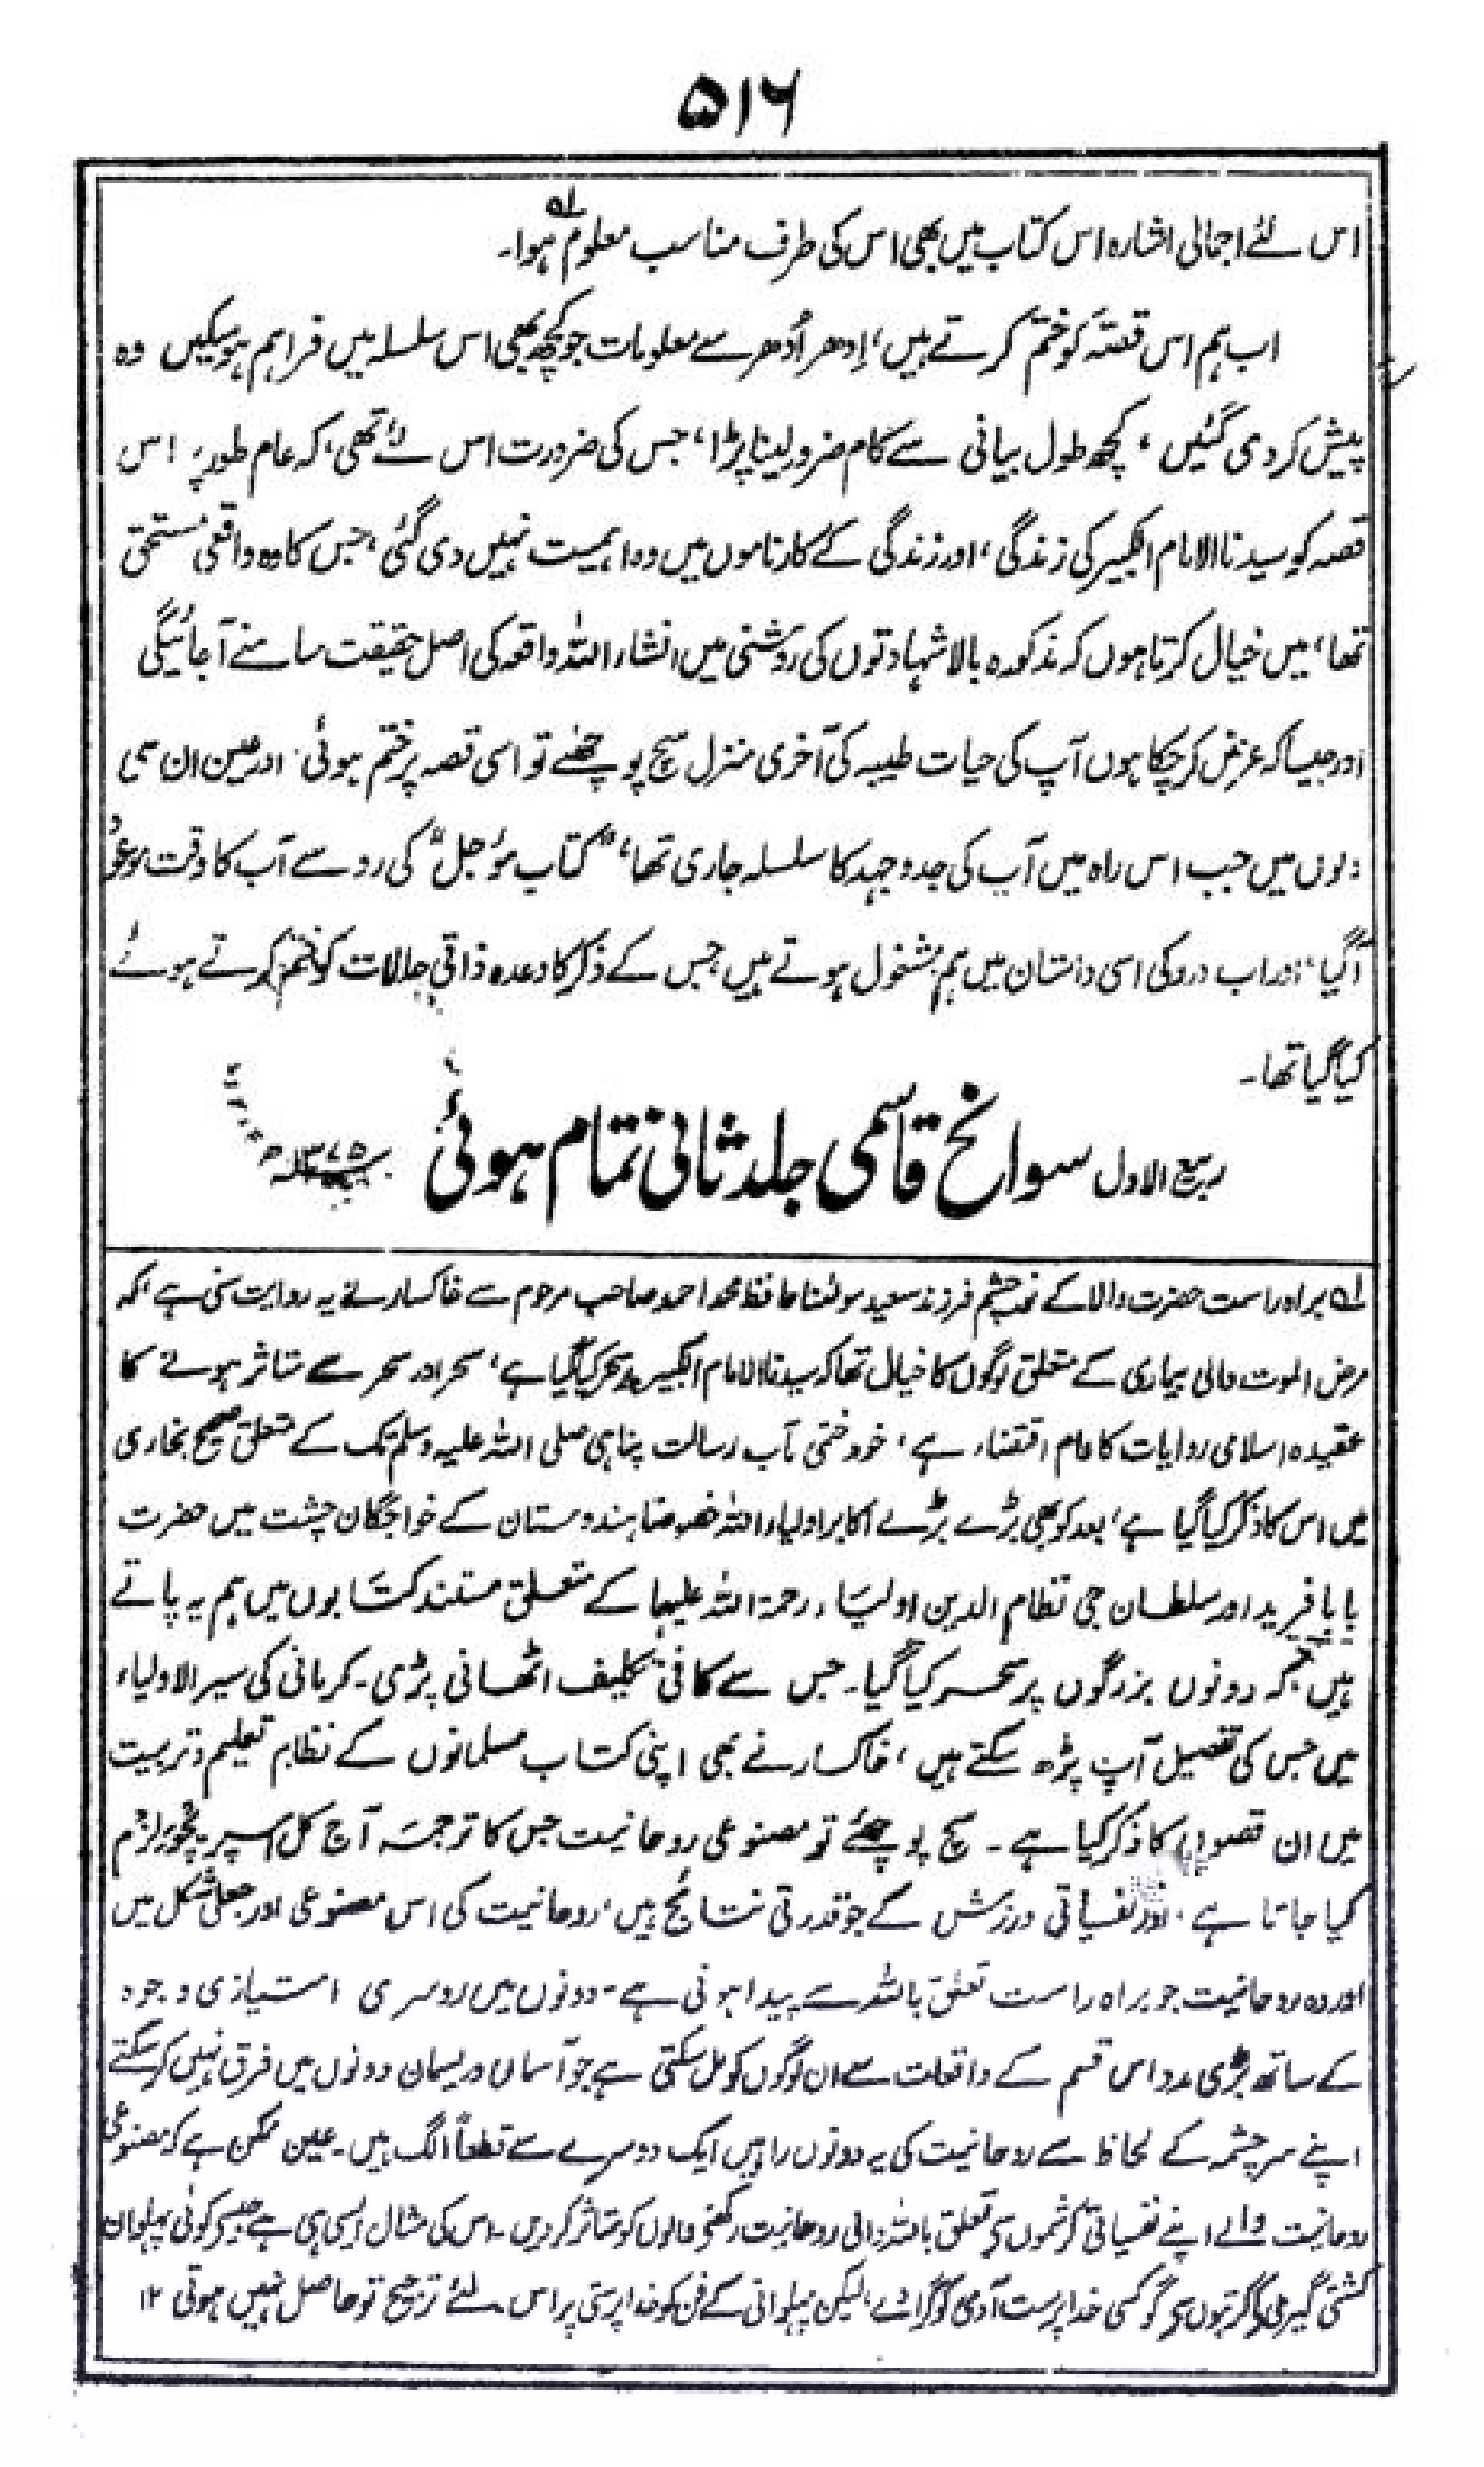 ۵۱۶
اس لئے اجمالی اشارہ اس کتاب میں بھی اس کی طرف مناسب معلوم ہوا۔ لہ
اب ہم اس قصّہ کو ختم کرتے ہیں، اِدھر اُدھر سے معلومات جو کچھ بھی اس سلسلہ میں فراہم ہوسکیں وہ
پیش کردی گئیں، کچھ طول بیانی سے کام ضرور لینا پڑا، جس کی ضرورت اس لئے تھی، کہ عام طور پر اس
قصہ کو سیدنا الامام الکبیر کی زندگی، اور زندگی کے کارناموں میں وہ اہمیت نہیں دی گئی، جس کا وہ واقعی مستحق
تھا، میں خیال کرتا ہوں کہ مذکورہ بالا شہادتوں کی روشنی میں انشاء اللہ واقعہ کی اصل حقیقت سامنے آجائیگی
اور جیسا کہ عرض کرچکا ہوں آپ کی حیات طیبہ کی آخری منزل سچ پوچھئے تو اسی قصہ پر ختم ہوئی۔ اور عین ان ہی
دنوں میں جب اس راہ میں آپ کی جدوجہد کا سلسلہ جاری تھا، "کتاب مؤجل" کی رو سے آپ کا وقت موعود
آگیا، اور اب درد کی اسی داستان میں ہم مشغول ہوتے ہیں جس کے ذکر کا وعدہ ذاتی حالات کو ختم کرتے ہوئے
کیا گیا تھا۔
ربیع الاول سوانح قاسمی جلد ثانی تمام ہوئی ۱۳۷۵ھ
لہ براہ راست حضرت والا کے فرزند سعید مولٰنا حافظ محمد احمد صاحب مرحوم سے خاکسار نے یہ روایت سنی ہے، کہ
مرض الموت والی بیماری کے متعلق لوگوں کا خیال تھا کہ سیدنا الامام الکبیر پر سحر کیا گیا ہے، سحر اور سحر سے متاثر ہونے کا
عقیدہ اسلامی روایات کا عام اقتضاء ہے، خود ختمی مآب رسالت پناہی صلی اللہ علیہ وسلم تک کے متعلق صحیح بخاری
میں اس کا ذکر کیا گیا ہے، بعد کو بھی بڑے بڑے اکابر اولیاء اللہ خصوصًا ہندوستان کے خواجگان چشت میں حضرت
بابا فرید اور سلطان جی نظام الدین اولیاء رحمۃ اللہ علیہما کے متعلق مستند کتابوں میں ہم یہ پاتے
ہیں کہ دونوں بزرگوں پر سحر کیا گیا۔ جس سے کافی تکلیف اٹھانی پڑی۔ کرمانی کی سیر الاولیاء
میں جس کی تفصیل آپ پڑھ سکتے ہیں، خاکسار نے بھی اپنی کتاب مسلمانوں کے نظام تعلیم و تربیت
میں ان قصوں کا ذکر کیا ہے۔ سچ پوچھئے تو مصنوعی روحانیت جس کا ترجمہ آج کل اسپریچولزم
کیا جاتا ہے، اور نفسیاتی ورزش کے جو قدرتی نتائج ہیں، روحانیت کی اس مصنوعی اور جعلی شکل میں
اور وہ روحانیت جو براہ راست تعلق باللہ سے پیدا ہوتی ہے۔ دونوں میں دوسری امتیازی وجوہ
کے ساتھ بڑی مدد اس قسم کے واقعات سے ان لوگوں کو مل سکتی ہے جو آسمان و ریسمان دونوں میں فرق نہیں کرسکتے
اپنے سرچشمہ کے لحاظ سے روحانیت کی یہ دونوں راہیں ایک دوسرے سے قطعاً الگ ہیں۔ عین ممکن ہے کہ مصنوعی
روحانیت والے اپنے نفسیاتی کرشموں سے تعلق باللہ والی روحانیت رکھنے والوں کو متاثر کردیں۔ اس کی مثال ایسی ہی ہے جیسے کوئی پہلوان
کشتی گیری کے کرتبوں سے گو کسی خدا پرست آدمی کو گرا دے، لیکن پہلوانی کے فن کو خدا پرستی پر اس لئے ترجیح تو حاصل نہیں ہوتی ۱۲